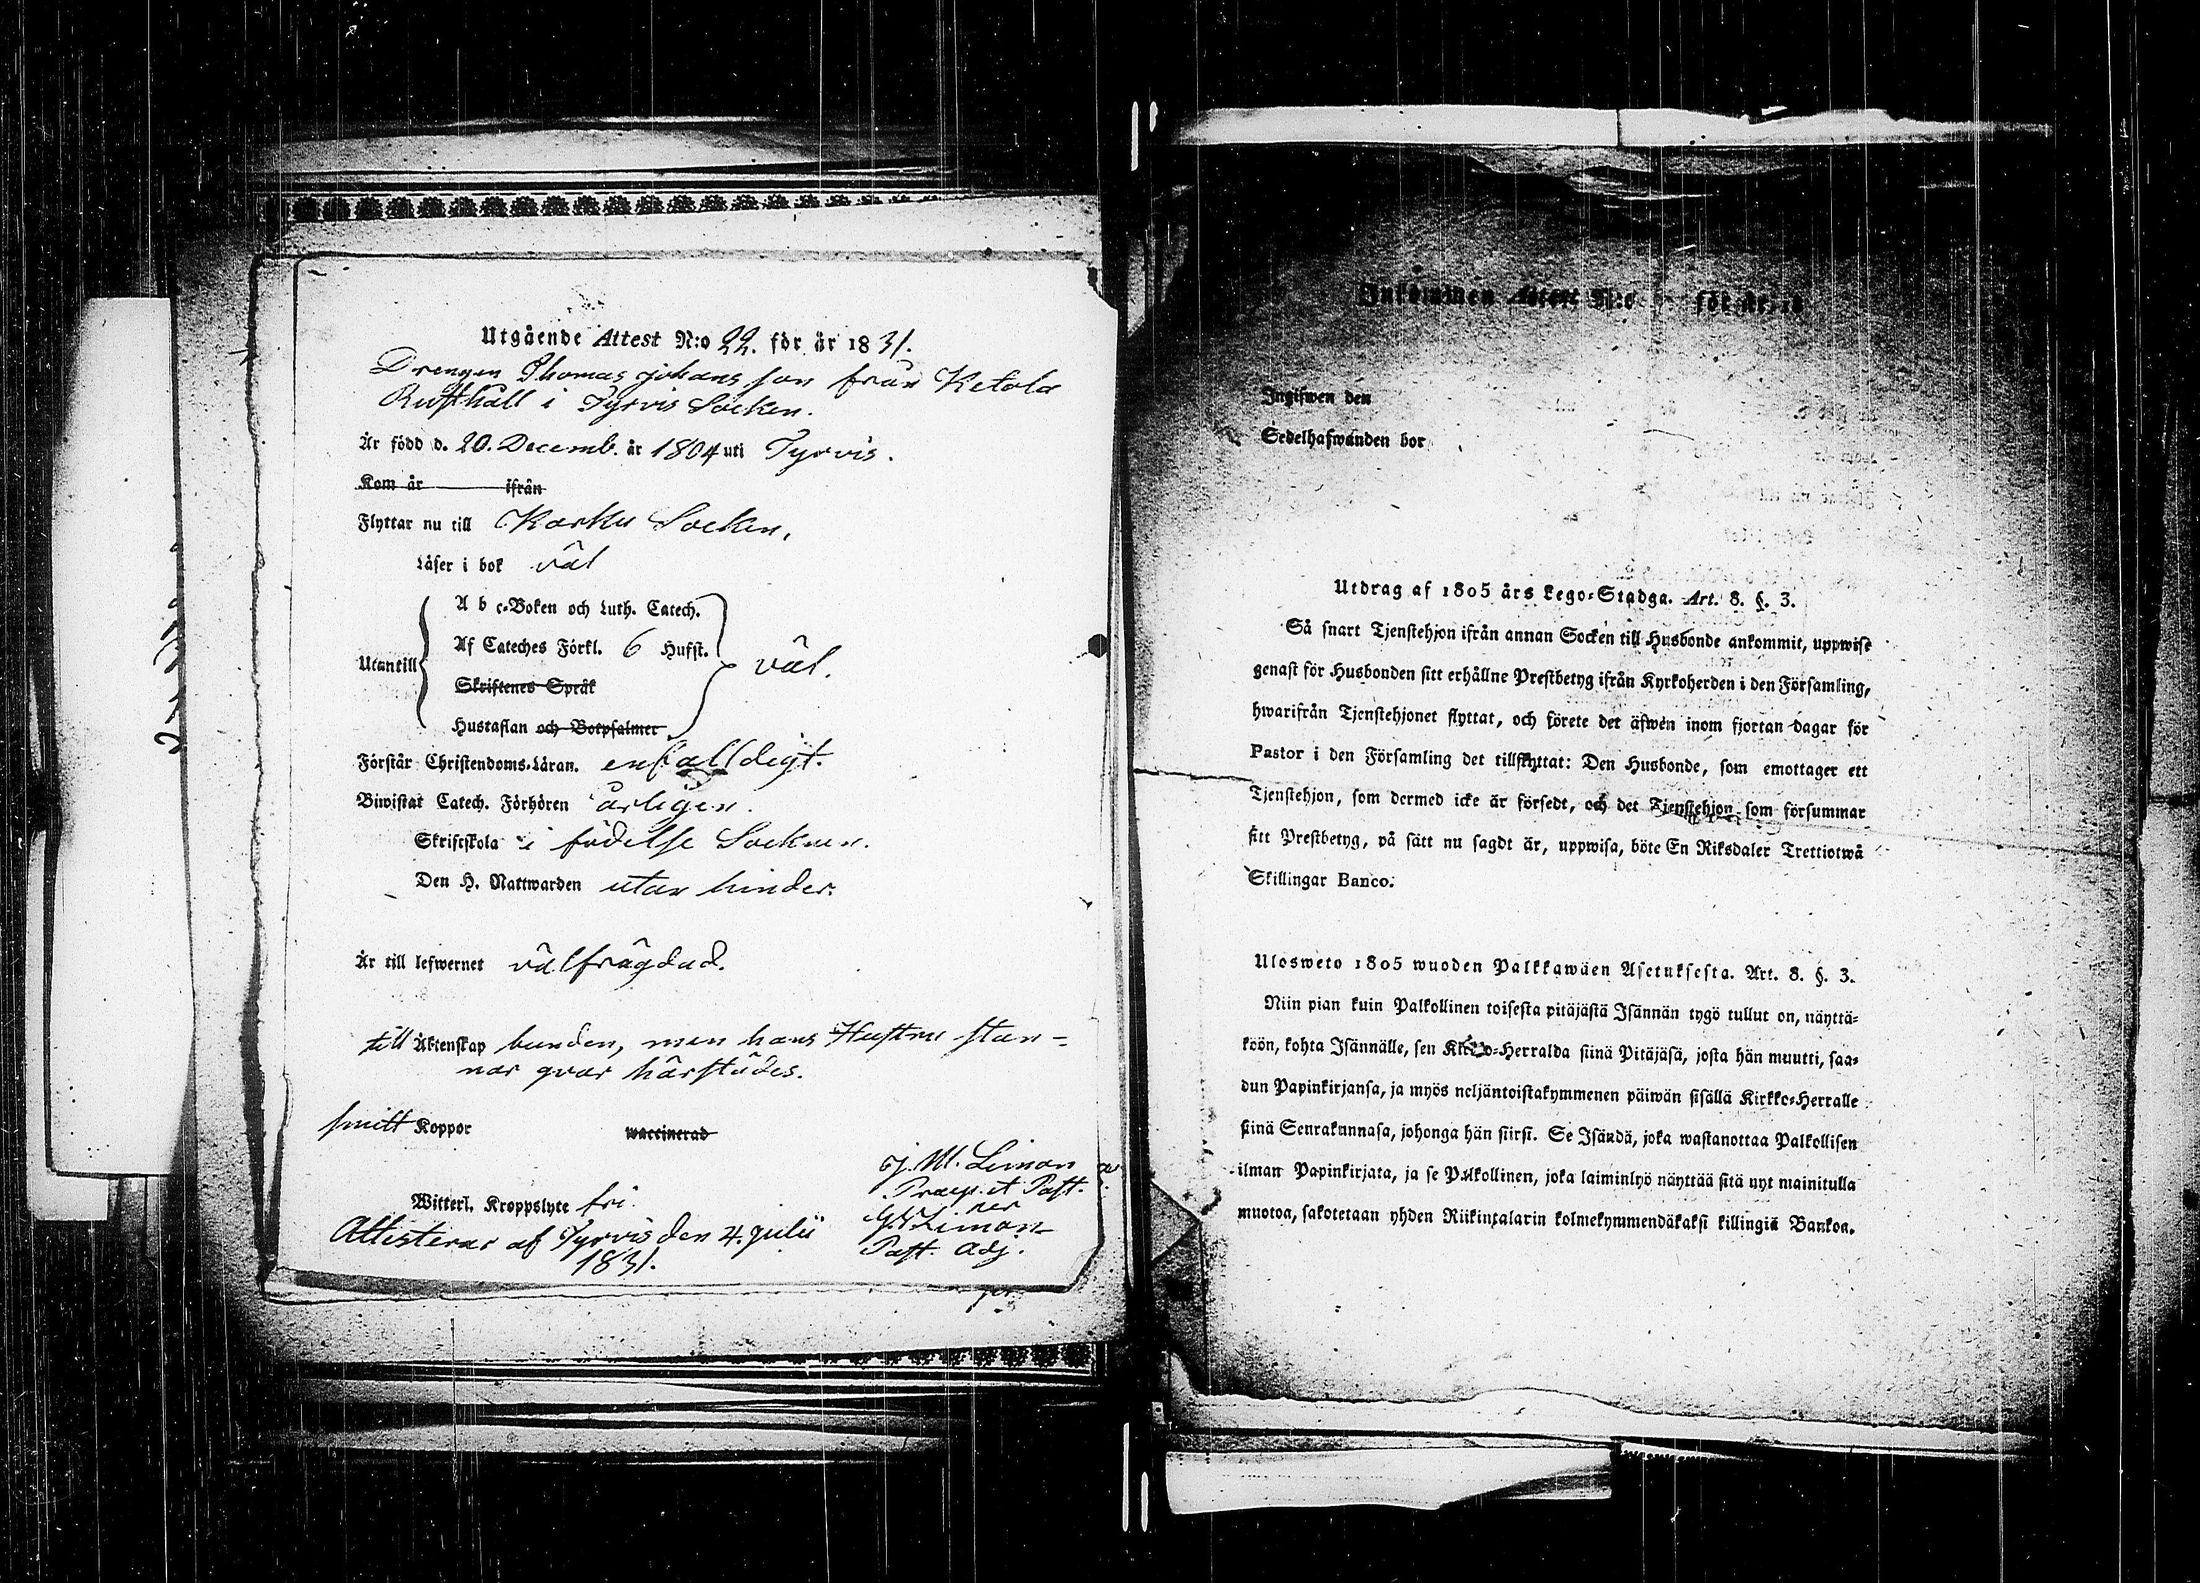 Utgående Attest N:o 22. för år 1831.
Drengen Thomas Johans son från Ketola
Rusthåll i Tyrvis Socken.
Är född d. 20. Decemb. år 1804 uti Tyrvis.
Kom år ifrån
Flyttar nu till Karku Socken.
Läser i bok väl
A b c-Boken och Luth. Catech.
Af Cateches Förkl. 6 Hufst.
Utantill väl.
Skriftenes Språk
Hustaflan och Botpsalmer
Förstår Christendoms-Läran. enfalldigt.
Biwistat Catech. Förhören årligen.
Skriftskola i födelse Socknen.
Den H. Nattwarden utan hinder.
Är till lefwernet välfrägdad.
till Äktenskap bunden, men hans Hustru stan-
nar qvar härstädes.
haft Koppor waccinerad
Witterl. Kroppslyte fri.
Attesteras af Tyrvis den 4. Julii
1831.
J. M. Limon
Praep. et Past.
per
G. Limon
Past. Adj.
Inkommen Attest N:o för år 18
Ingifwen den
Sedelhafwanden bor
Utdrag af 1805 års Lego-Stadga. Art. 8. §. 3.
Så snart Tjenstehjon ifrån annan Socken till Husbonde ankommit, uppwise
genast för Husbonden sitt erhållne Prestbetyg ifrån Kyrkoherden i den Församling,
hwarifrån Tjenstehjonet flyttat, och förete det äfwen inom fjortan dagar för
Pastor i den Församling det tillflyttat: Den Husbonde, som emottager ett
Tjenstehjon, som dermed icke är försedt, och det Tjenstehjon som försummar
sitt Prestbetyg, på sätt nu sagdt är, uppwisa, böte En Riksdaler Trettiotwå
Skillingar Banco.
Ulosweto 1805 wuoden Palkkawäen Asetuksesta. Art. 8. §. 3.
Niin pian kuin Palkollinen toisesta pitäjästä Isännän tygö tullut on, näyttä-
köön, kohta Isännälle, sen Kirkko-Herralda siinä Pitäjäsä, josta hän muutti, saa-
dun Papinkirjansa, ja myös neljäntoistakymmenen päiwän sisällä Kirkko-Herralle
siinä Seurakunnasa, johonga hän siirsi. Se Isändä, joka wastanottaa Palkollisen
ilman Papinkirjata, ja se Palkollinen, joka laiminlyö näyttää sitä nyt mainitulla
muotoa, sakotetaan yhden Riikintalarin kolmekymmendäkaksi killingiä Bankoa.